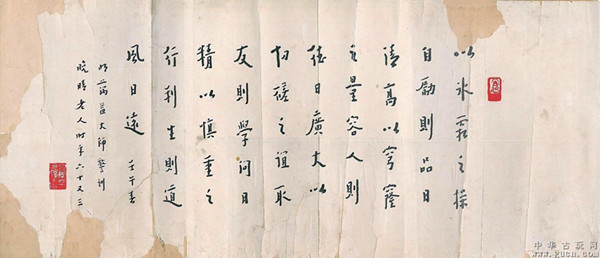 以冰霜之操
自勵則品日
清高以穹窿
之量容人則
德日廣大以
切磋之誼取
友則學問日
精以慎重之
行利生則道
風日遠 壬午春
明蕅益大師警訓
晚晴老人时年六十又三
中华古玩网
www.gucn.com